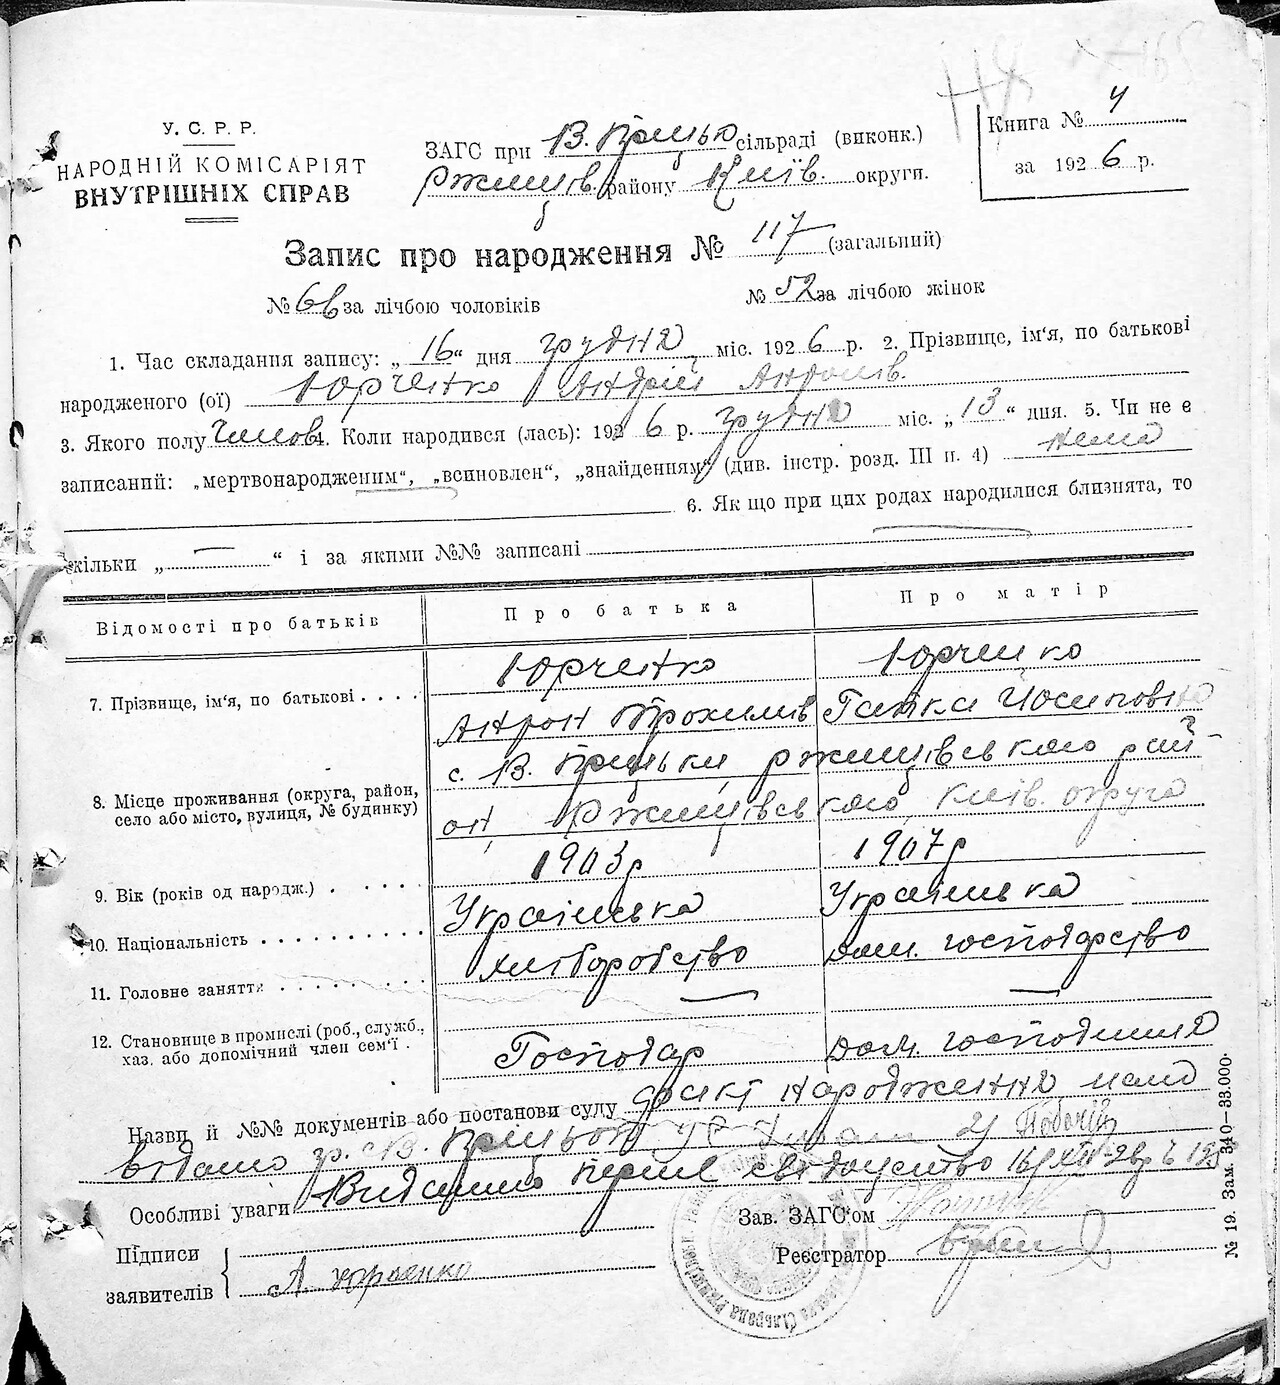 У. С. Р. Р.
НАРОДНІЙ КОМІСАРІЯТ
ВНУТРІШНІХ СПРАВ
ЗАГС при В. Прицьк сільраді (виконк.)
Ржищів. району Київ. округи.
Книга № 4
за 1926 р.
Запис про народження № 117 (загальний)
№ за лічбою чоловіків
№ 52 за лічбою жінок
1. Час складання запису: „16“ дня грудня міс. 1926 р. 2. Прізвище, ім‘я, по батькові
народженого (ої) Юрченко Андрій Андронів.
3. Якого полу Чолов. 4. Коли народився (лась): 1926 р. грудня міс. „13“ дня. 5. Чи не є
записаний: „мертвонародженим“, „всиновлен“, „знайденням“ (див. інстр. розд. III п. 4) нема
6. Як що при цих родах народилися близнята, то
скільки „ — “ і за якими №№ записані —
Відомості про батьків
Про батька
Про матір
7. Прізвище, ім‘я, по батькові . . . .
Юрченко
Юрченко
Андрон Трохимів
Ганка Йосиповна
8. Місце проживання (округа, район,
село або місто, вулиця, № будинку)
с. В. Прицьки Ржищівського рай-
он Ржищівського, Київ. округа
9. Вік (років од народж.) . . . . .
1903р
1907р
10. Національність . . . . . . . . . .
Українська
Українська
11. Головне заняття . . . . . . . . .
хліборобство
дом. господарство
12. Становище в промислі (роб., служб.,
хаз. або допомічний член сем‘ї .
Господар
дом. господиня
Назви й №№ документів або постанови суду факт народження мало
видано гр. с В. Прицьки
Особливі уваги Видано перше свідоцтво
Зав. ЗАГС‘ом
Реєстратор
Підписи
заявителів
А Юрченко
№ 19. Зам. 340—33.000.